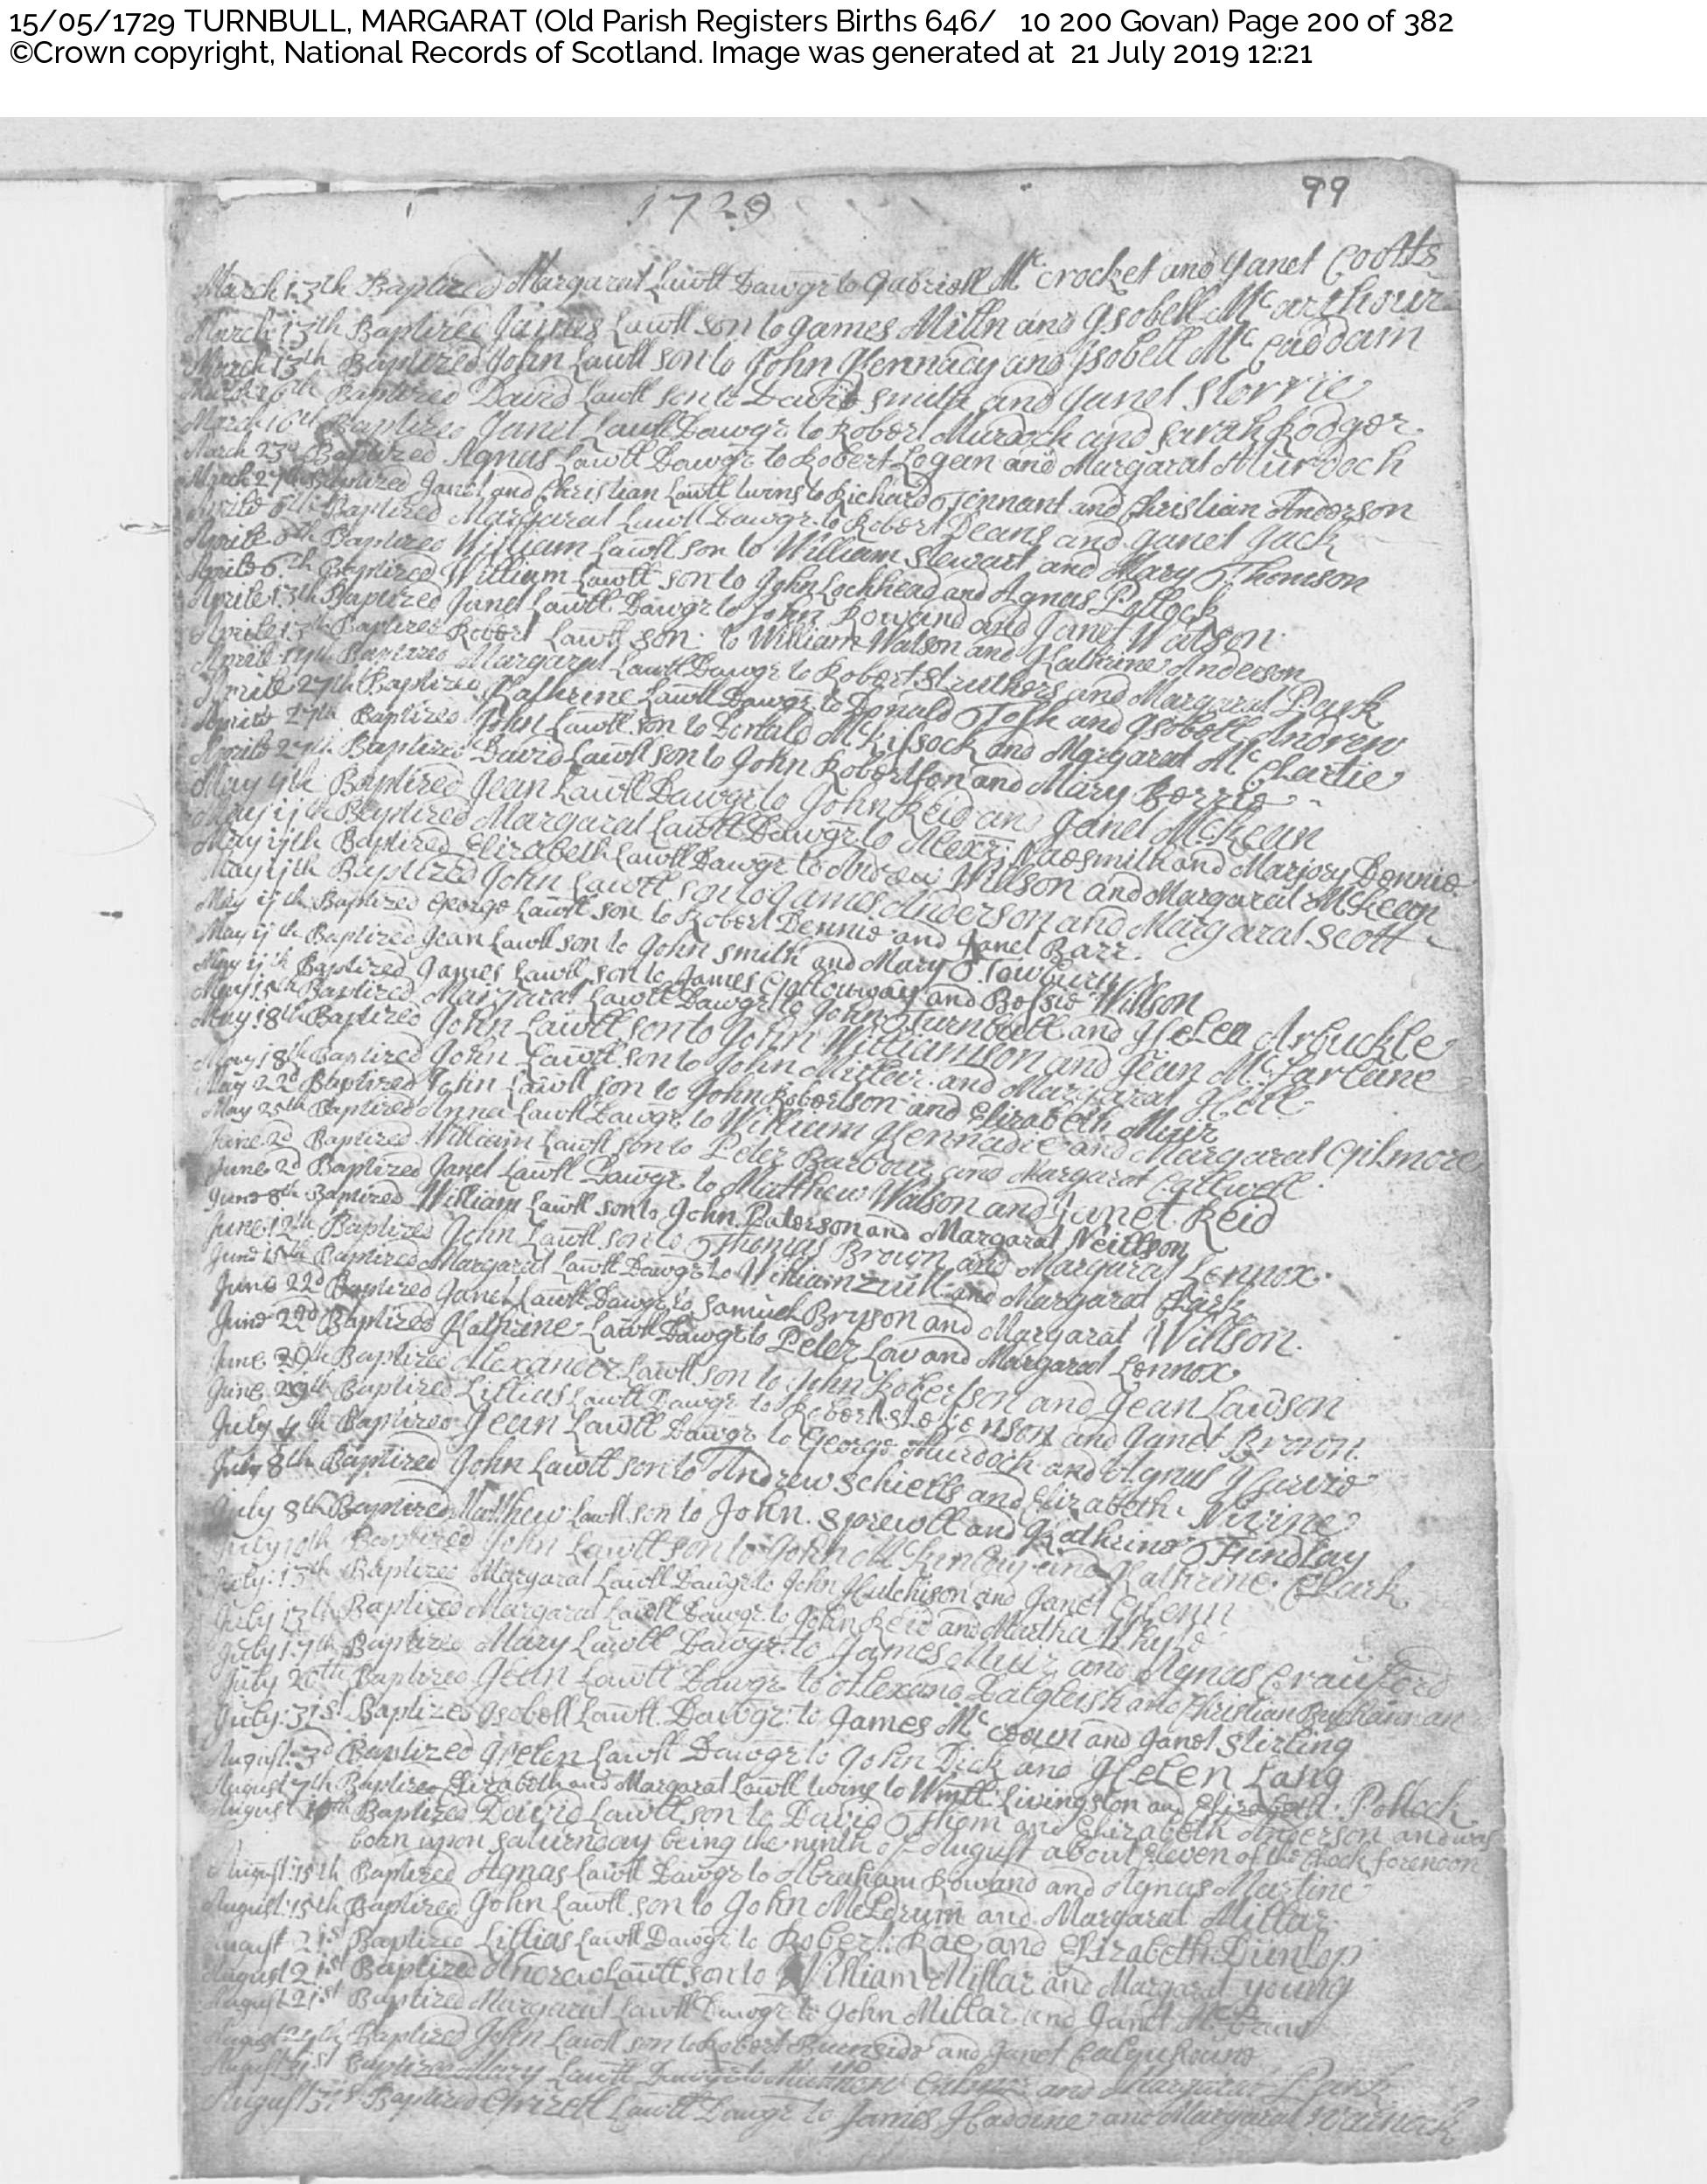 15/05/1729 TURNBULL, MARGARAT (Old Parish Registers Births 646/ 10 200 Govan) Page 200 of 382
©Crown copyright, National Records of Scotland. Image was generated at 21 July 2019 12:21
1729
99
March 13th Baptized Margarat Lawll Dawgr to Gabriell Mc crocket and Janet Cootts
March 13th Baptized James Lawll son to James Milln and Isobell Mc arthour
March 13th Baptized John Lawll son to John Hennacy and Isobell Mc Caddam
March 16th Baptized David Lawll son to David Smith and Janet Storrie
March 16th Baptized Janet Lawll Dawgr to Robert Murdoch and Sarah Rodger
March 23d Baptized Agnas Lawll Dawgr to Robert Logan and Margarat Murdoch
March 27th Baptized Janet and Christian Lawll twins to Richard Tennant and Christian Anderson
Aprile 6th Baptized Margarat Lawll Dawgr to Robert Deans and Janet Jack
Aprile 6th Baptized William Lawll son to William Stewart and Mary Thomson
Aprile 6th Baptized William Lawll son to John Lochhead and Agnas Pollock
Aprile 13th Baptized Janet Lawll Dawgr to John Rowand and Janet Watson
Aprile 13th Baptized Robert Lawll son to William Watson and Kathrine Anderson
Aprile Baptized Margarat Lawll Dawgr to Robert Struthers and Margarat Park
Aprile 27th Baptized Kathrine Lawll Dawgr to Donald Tosh and Isobell Andrew
Aprile 27th Baptized John Lawll son to Donald McKissock and Margarat Mc Clartie
Aprile 27th Baptized David Lawll son to John Robertson and Mary Berrie
May 4th Baptized Jean Lawll Dawgr to John Reid and Janet McKean
May 11th Baptized Margarat Lawll Dawgr to Alexr Naesmith and Marjory Dennie
May 11th Baptized Elizabeth Lawll Dawgr to Andrew Willson and Margarat McKean
May 11th Baptized John Lawll son to James Anderson and Margarat Scott
May 11th Baptized George Lawll son to Robert Dennie and Janet Barr
May 11th Baptized Jean Lawll son to John Smith and Mary
May 11th Baptized James Lawll son to James Galloway and Bessie Willson
May 15th Baptized Margarat Lawll Dawgr to John Turnbull and Helen Arbuckle
May 18th Baptized John Lawll son to John Williamson and Jean Mc Farleine
May 18th Baptized John Lawll son to John Millar and Margarat Hill
May 22d Baptized John Lawll son to John Robertson and Elizabeth Muir
May 25th Baptized Anna Lawll Dawgr to William Hennadie and Margarat Gilmore
June 2d Baptized William Lawll son to Peter Barbour and Margarat Callwell
June 2d Baptized Janet Lawll Dawgr to Matthew Watson and Janet Reid
June 8th Baptized William Lawll son to John Paterson and Margarat Neillson
June 12th Baptized John Lawll son to Thomas Brown and Margarat Lennox
June 15th Baptized Margarat Lawll Dawgr to William Zuill and Margarat Clark
June 22d Baptized Janet Lawll Dawgr to Samuel Bryson and Margarat Willson
June 22d Baptized Kathrine Lawll Dawgr to Peter Law and Margarat Lennox
June 29th Baptized Alexander Lawll son to John Robertson and Jean Lawson
June 29th Baptized Lillias Lawll Dawgr to Robert Stevenson and Janet Brown
July 4th Baptized Jean Lawll Dawgr to George Murdoch and Agnas Howie
July 8th Baptized John Lawll son to Andrew Schiells and Elizabeth Nivine
July 8th Baptized Matthew Lawll son to John Sprewll and Kathrine Findlay
July 10th Baptized John Lawll son to John and Kathrine Clark
July 13th Baptized Margarat Lawll Dawgr to John Hutchison and Janet Glenn
July 13th Baptized Margarat Lawll Dawgr to John Reid and Martha Whyte
July 17th Baptized Mary Lawll Dawgr to James Muir and Agnas Crauford
July 20th Baptized Jean Lawll Dawgr to Alexand Dalgleish and Christian Buchannan
July 31st Baptized Isobell Lawll Dawgr to James Mc and Janet Stirling
August 3d Baptized Helen Lawll Dawgr to John Dick and Helen Lang
August 7th Baptized Elizabeth and Margarat Lawll twins to Willm Livingston and Elizabeth Pollock
August 10th Baptized David Lawll son to David Thom and Elizabeth Anderson and was
born upon saturnday being the ninth of August about Eleven of the Clock forenoon
August 15th Baptized Agnas Lawll Dawgr to Abraham Rowand and Agnas Martine
August 15th Baptized John Lawll son to John Meldrum and Margarat Millar
August 21st Baptized Lillias Lawll Dawgr to Robert Rae and Elizabeth Dunlop
August 21st Baptized Andrew Lawll son to William Millar and Margarat Young
August 21st Baptized Margarat Lawll Dawgr to John Millar and Janet
August 24th Baptized John Lawll son to Robert Burnside and Janet Calquhoune
August 31st Baptized Mary Lawll Dawgr to Matthow and Margarat Park
August 31st Baptized Grizell Lawll Dawgr to James and Margarat Warnock